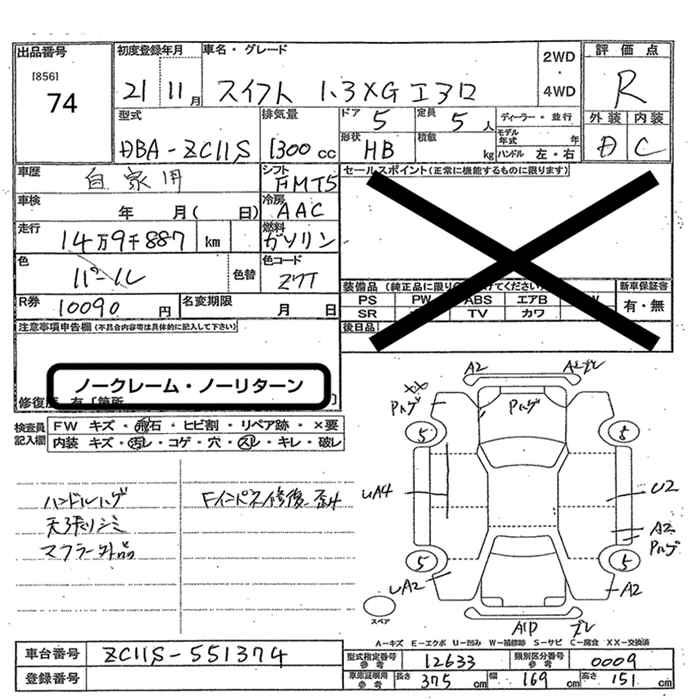 出品番号 初度登録年月 車名・グレード 2WD・4WD 評価点
[856]
74
21 11月 スイフト 1.3XG エアロ R
型式 排気量 ドア 5 定員 5人 ディーラー・並行 外装 内装
DBA-ZC11S 1300cc 形状 HB 積載 kg モデル年式 年 ハンドル 左・右 D C
車歴 自家用 シフト FMT5 セールスポイント(正常に機能するものに限ります)
車検 年 月( 日) 冷房 AAC
走行 14万9千887 km 燃料 ガソリン
色 パープル 色替 色コード ZTT
装備品(純正品に限り 新車保証書
R券 10090円 名変期限 月 日 PS PW ABS エアB W 有・無
SR TV カワ
注意事項申告欄(不具合内容等は具体的に記入して下さい) 後日品
ノークレーム・ノーリターン
修復歴 有〔箇所 〕
検査員記入欄 FW キズ・飛石・ヒビ割・リペア跡・×要
内装 キズ・汚レ・コゲ・穴・スレ・キレ・破レ
ハンドルハゲ Fインパネ修復 歪ミ
天張リシミ
マフラー外品
A2 A2ズレ
Pハゲ Pハゲ
5 5
UA4 U2
A2
Pハゲ
5 5
UA2 A2
A1P ズレ
スペア
A-キズ E-エクボ U-凹み W-補修跡 S-サビ C-腐食 XX-交換済
車台番号 ZC11S-551374 型式指定番号 参考 12633 類別区分番号 参考 0009
登録番号 車庫証明用 参考 長さ 375 cm 幅 169 cm 高さ 151 cm